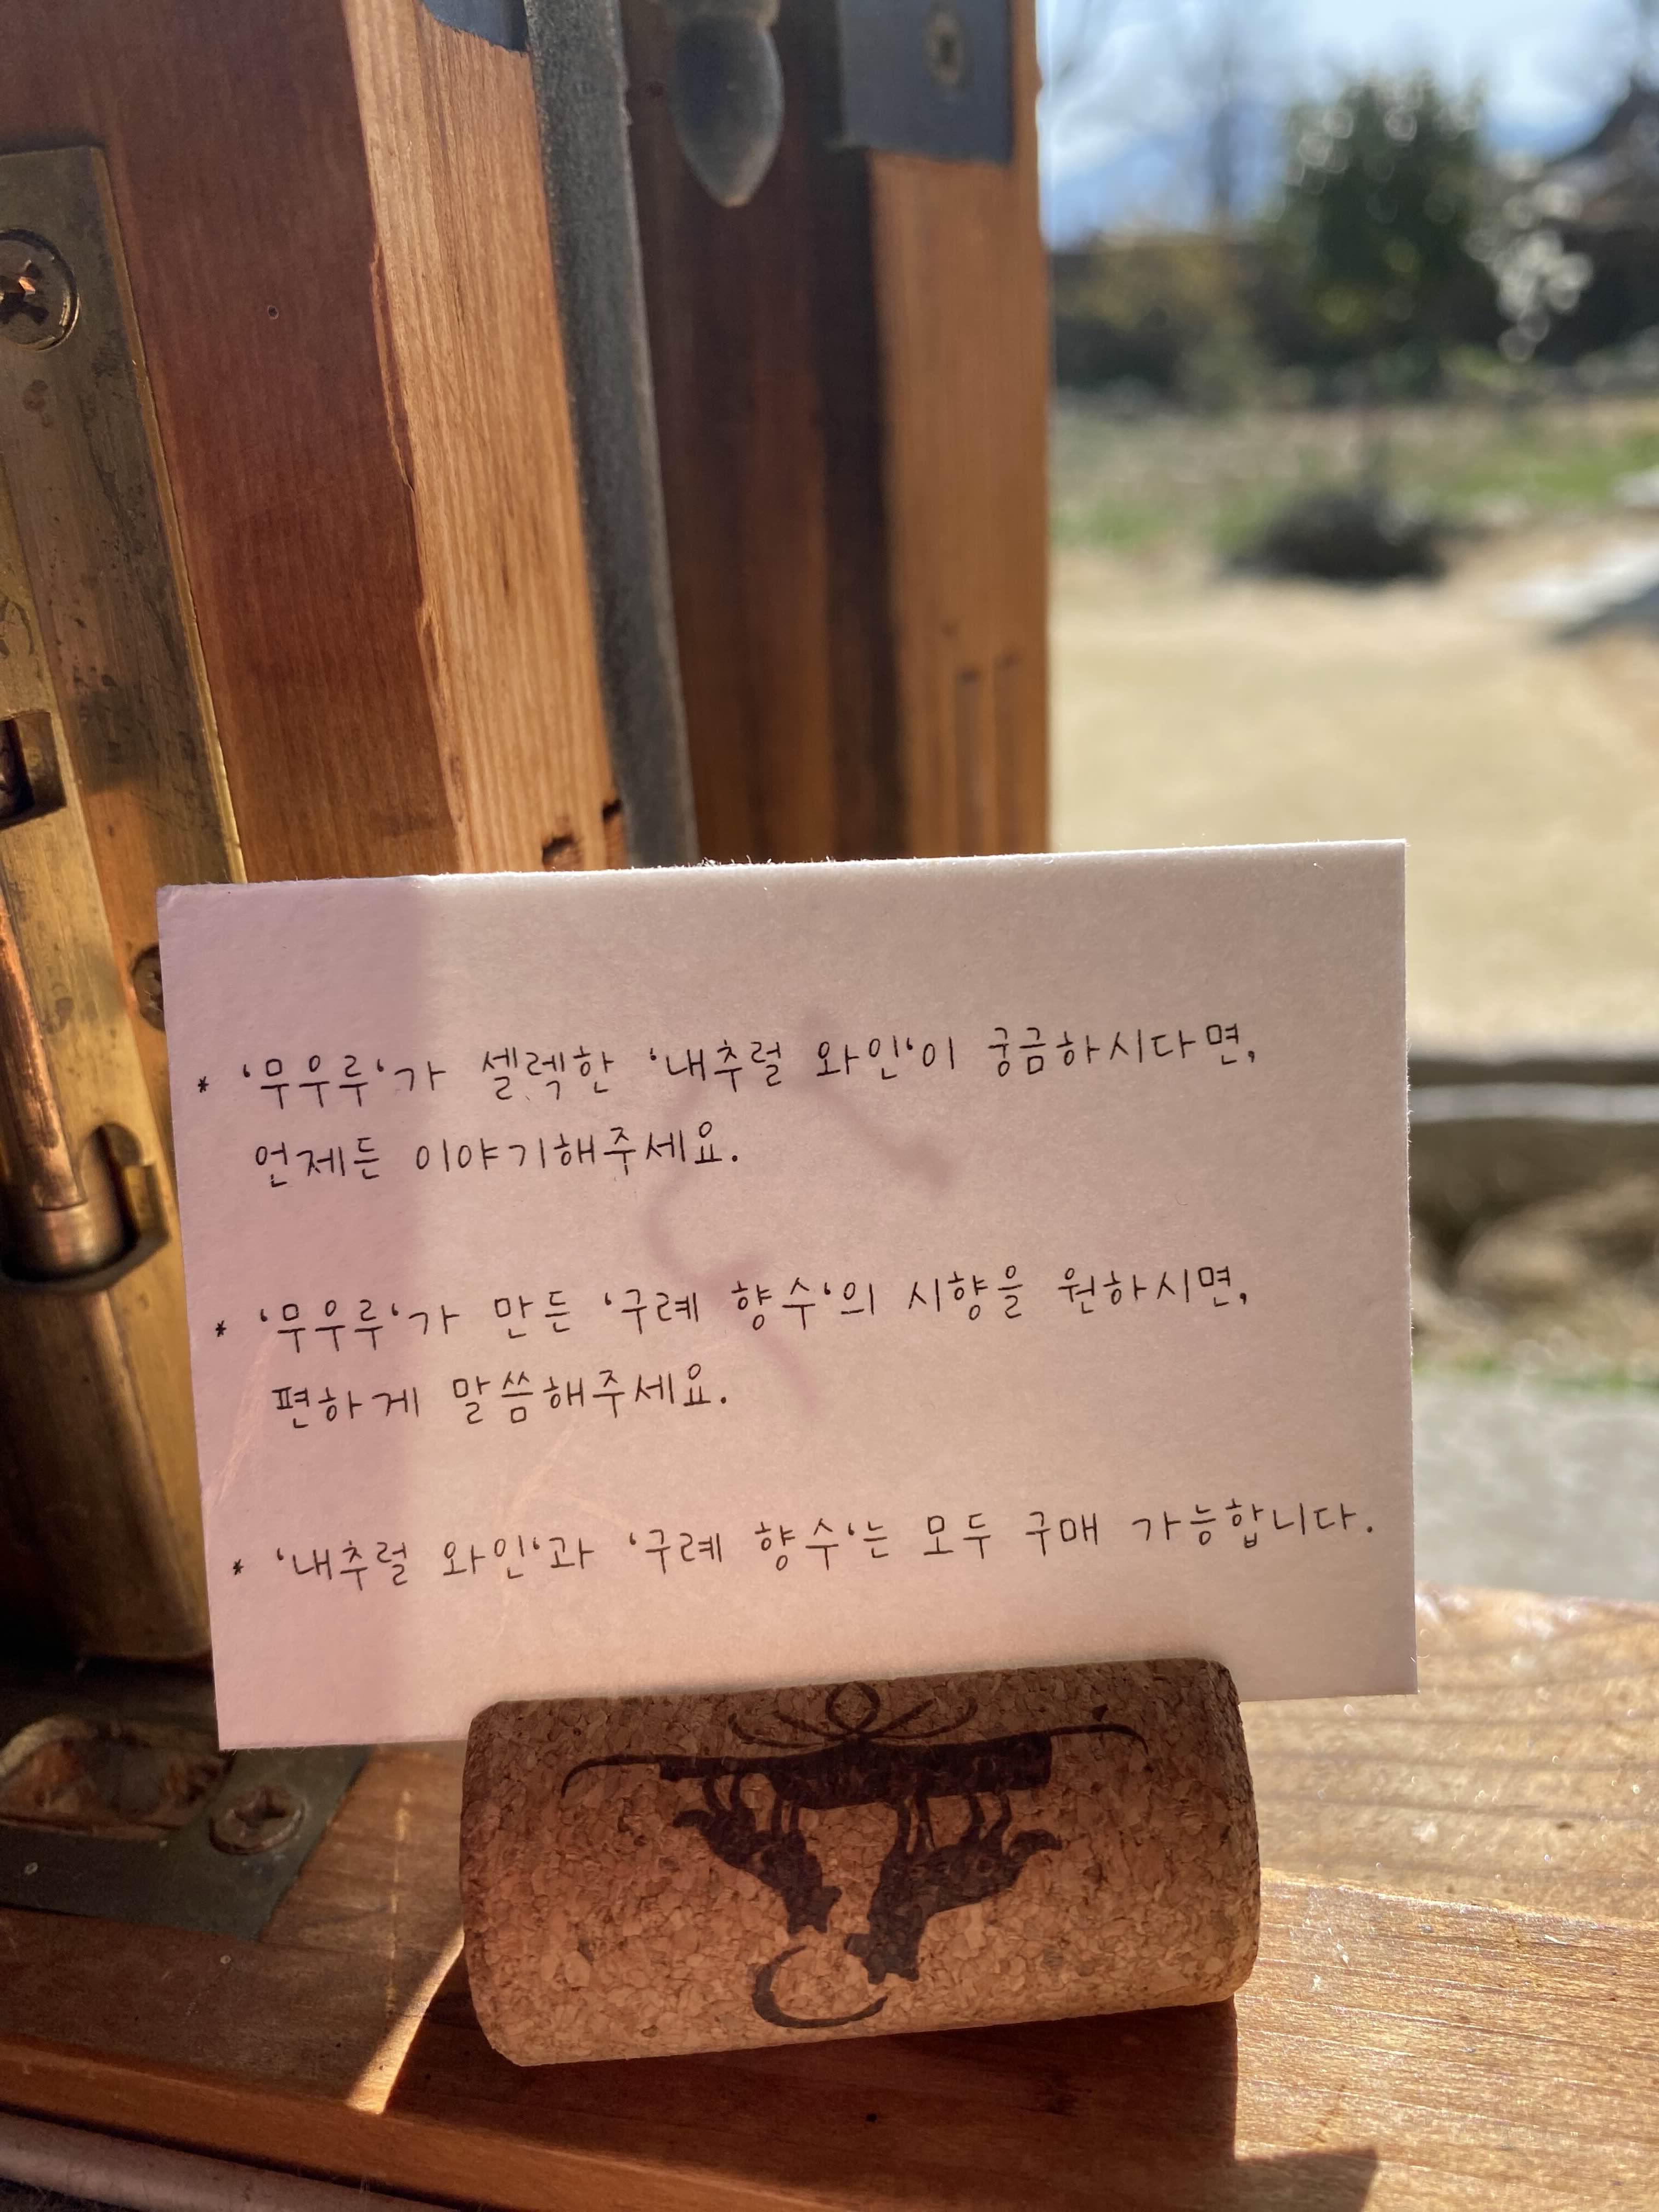 * '무우루'가 셀렉한 '내추럴 와인'이 궁금하시다면,
언제든 이야기해주세요.
* '무우루'가 만든 '구례 향수'의 시향을 원하시면,
편하게 말씀해주세요.
* '내추럴 와인'과 '구례 향수'는 모두 구매 가능합니다.